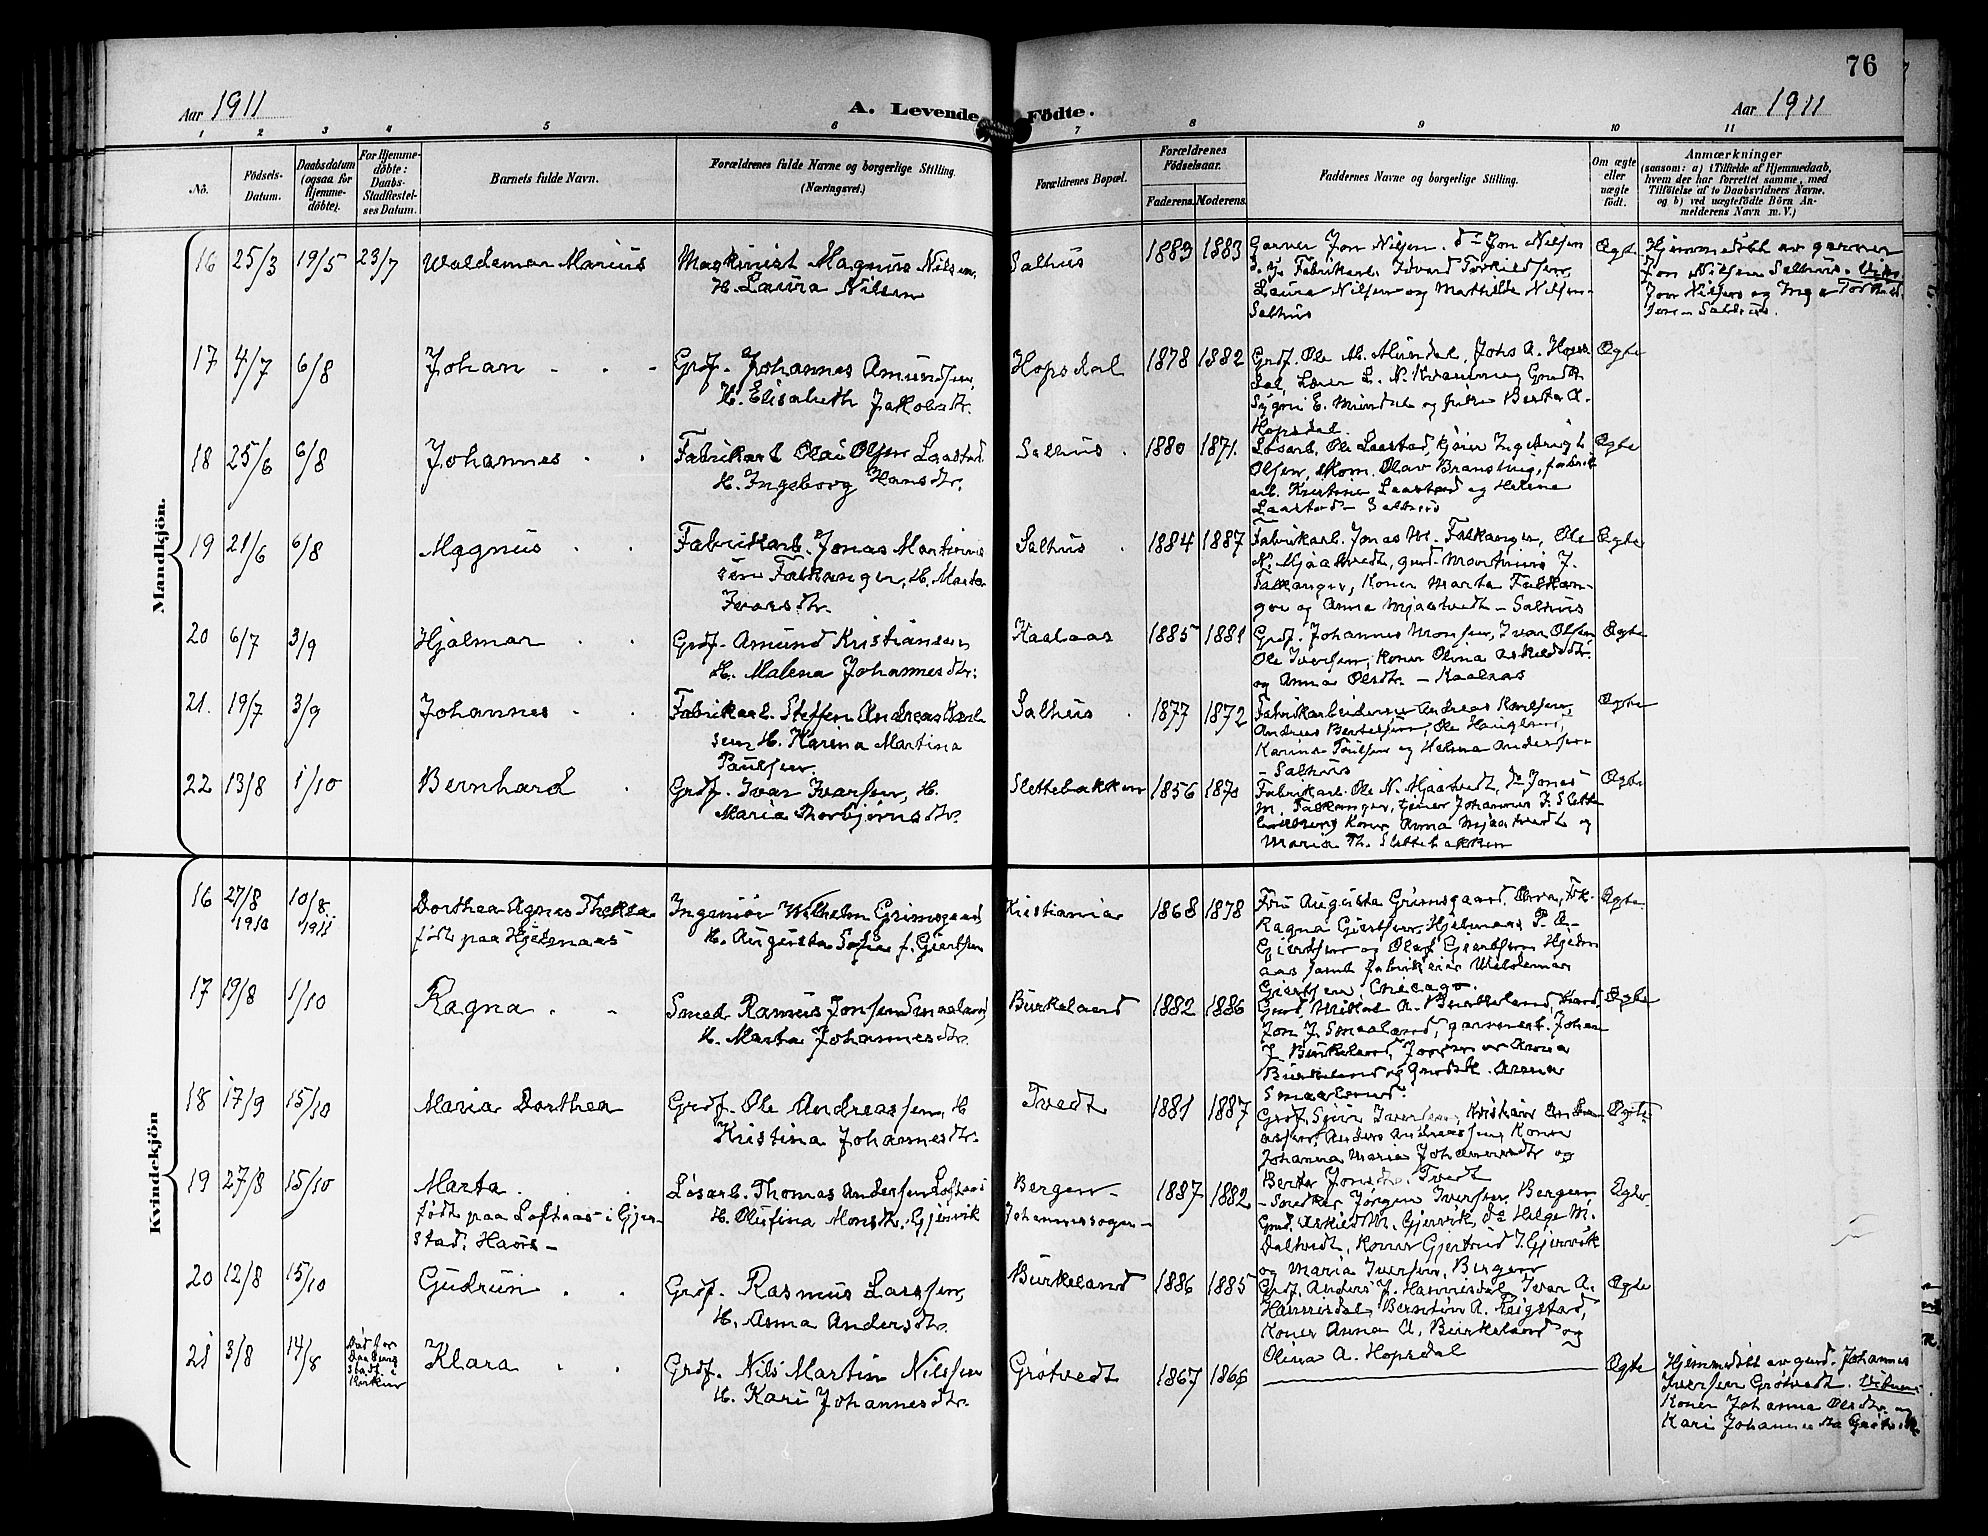 76
Aar 1911
A. Levende Födte.
Aar 1911
1 2 3 4 5 6 7 8 9 10 11
No.
Födsels-Datum.
Daabsdatum (ogsaa for Hjemme-döbte).
For Hjemme-döbte: Daabs-Stadfæstel-ses Datum.
Barnets fulde Navn.
Forældrenes fulde Navne og borgerlige Stilling.
(Næringsvei.)
Forældrenes Bopæl.
Forældrenes Födselsaar.
Faderens. Moderens.
Faddernes Navne og borgerlige Stilling.
Om ægte eller uægte födt.
Anmærkninger
(saasom: a) i Tilfælde af Hjemmedaab,
hvem der har forrettet samme, med
Tilföielse af to Daabsvidners Navne,
og b) ved uægtefödte Börn An-
melderens Navn m. V.)
Mandkjön.
16 25/3 19/5 23/7 Waldemar Marius
Maskinist Magnus Nilsen,
H. Laura Nilsen
Salhus 1883 1883
Garver Jon Nilsen. do Jon Nilsen
Fabrikarb.
Laura Nilsen og Mathilde Nilsen-
Salhus
Ægte
Hjemmedöbt av garver
Jon Nilsen Salhus.
Jon Nilsen og Inga
Salhus.
17 4/7 6/8 Johan
Grdf. Johannes Amundsen,
H. Elisabeth Jakobsdtr.
Hopsdal 1878 1882
Grdf. Ole M. Mundal, Johs A. Hops
dal, Lærer L. N.
E. Mundal og Berta A.
Hopsdal.
Ægte
18 25/6 6/8 Johannes
Fabrikarb. Olai Olsen Laastad
H. Ingeborg Hansdtr.
Salhus 1880 1871.
Løsarb. Ole Laastad,
Olsen, Olav fabrik
arb. Laastad og Helene
Laastad - Salhus
Ægte
19 21/6 6/8 Magnus
Fabrikarb. Jonas Martinus
sen Falkanger, H. Marta
Ivarsdtr.
Salhus 1884 1887
Fabrikarb. Jonas M. Falkanger, Ole
N. Mjaatvedt, gmd. Martinus J.
Falkanger, Koner Marta Falkan-
ger og Anna Mjaatvedt - Salhus
Ægte
20 6/7 3/9 Hjalmar
Grdf. Amund Kristiansen
H. Malena Johannesdtr.
Kaalaas 1885 1881
Grdf. Johannes Monsen, Ivar Olsen
Ole Iversen, Koner Olina Askeldsdtr.
og Anna Olsdtr. - Kaalaas
Ægte
21. 19/7 3/9 Johannes
Fabrikarb. Steffen Andreas Karl
sen H. Karina Martina
Paulsen.
Salhus 1877 1872
Fabrikarbeiderne Andreas Karlsen,
Andreas Bertelsen, Ole
Karina Paulsen og Helma Andersen-
- Salhus
Ægte
22 13/8 1/10 Bernhard
Grdf. Ivar Ivarsen, H.
Maria Thorbjörnsdtr.
Slettebakken 1856 1870
Fabrikarb. Ole N. Mjaatvedt, do Jonas
M. Falkanger, tjener Johannes I. Slette
Koner Anna Mjaatvedt og
Maria Th. Slettebakken
Ægte
Kvindekjön
16 27/8 1910 10/8 1911
Dorthea Agnes Thekla
født paa Hjelmaas
Ingeniör Wilhelm Grimsgaard
H. Augusta Sofia f. Giertsen
Kristiania 1868 1878
Fru Augusta Grimsgaard,
Ragna Giertsen, Hjelmaas P. A.
Giertsen og Olaf Giertsen Hjelm
aas samt Waldemar
Giertsen, Chicago.
Ægte
17 19/8 1/10 Ragna
Smed Rasmus Jonsen Smaaland
H. Marta Johannesdtr.
Birkeland 1882 1886
Gmd. A. Birkeland,
Jon J. Smaaland, Johan
J. Birkeland, Anna
Birkeland og Anna
Smaaland.
Ægte
18 17/9 15/10 Maria Dorthea
Grdf. Ole Andreassen, H
Kristina Johannesdtr.
Tvedt 1881 1887
Grdf. Iversen, Kristian Andre
assen, Anders Andreassen, Kone
Johanna Maria Johannesdtr og
Berta Jonsdtr. Tvedt
Ægte
19 27/8 15/10 Marta
født paa Loftaas i Gjer
stad. Haus -
Løsarb. Thomas Andersen Loftaas
H. Olufina Monsdtr. Gjervik
Bergen-
Johannessogen- 1887 1882
- Snedker Jørgen Iversen, Bergen
Gmd. Askild M. Gjervik, do Helge M.
Daltvedt, Koner Gjertrud I. Gjervik
og Maria Iversen, Bergen
Ægte
20 12/8 15/10 Gudrun
Grdf. Rasmus Larsen,
H. Anna Andersdtr.
Birkeland 1886 1885
Grdf. Anders J. Hannisdal, Ivar A.
Hannisdal, Berntin A. Reigstad,
Koner Anna A. Birkeland og
Olina A. Hopsdal
Ægte
21 3/8 14/8
Død før
Daabens
stadf. i
Kirken
Klara
Grdf. Nils Martin Nilssen
H. Kari Johannesdtr.
Grøtvedt 1867 1866
Ægte
Hjemmedöbt av gmd. Johannes
Iversen Grøtvedt. Vidner:
Koner Johanna Olsdtr. og
Kari Johannesdtr Grøtvedt